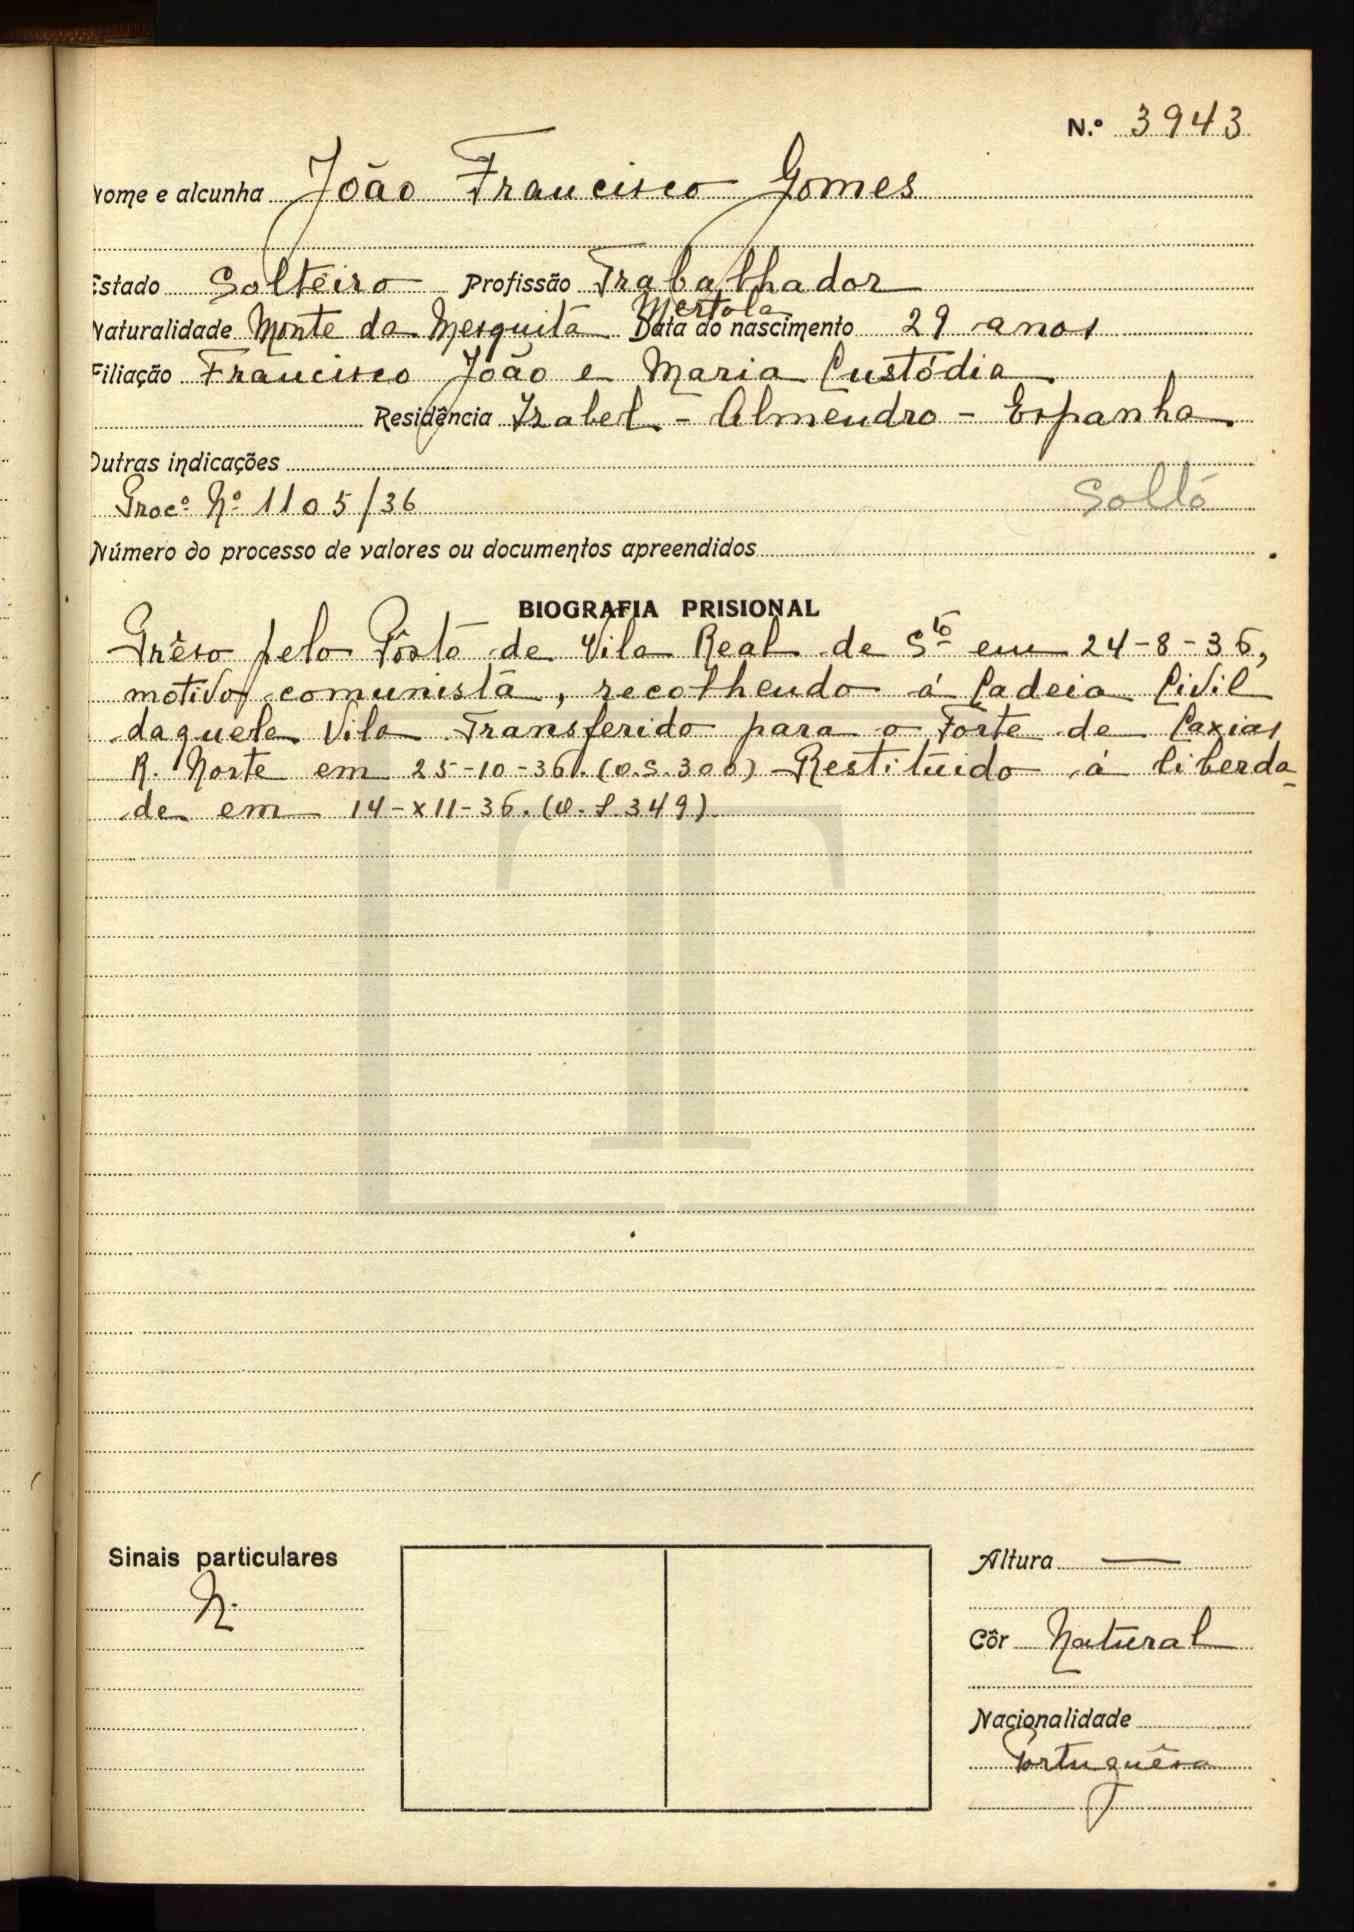 N.º 3943
Nome e alcunha João Francisco Gomes
Estado Solteiro Profissão Trabalhador
Mertola
Naturalidade Monte da Mesquita Data do nascimento 29 anos
Filiação Francisco João e Maria Custódia
Residência Izabel - Almendro - Espanha
Outras indicações
Procº Nº 1105/36 Solto
Número do processo de valores ou documentos apreendidos
BIOGRAFIA PRISIONAL
Prêso pelo Pôsto de Vila Real de Stº em 24-8-36,
motivo comunista, recolhendo á Cadeia Civil
daquela Vila Transferido para o Forte de Caxias
R. Norte em 25-10-36. (O.S.300) Restituido á liberda-
de em 14-XII-36. (O.S.349)
Sinais particulares
N.
Altura —
Côr Natural
Nacionalidade
Portuguêsa